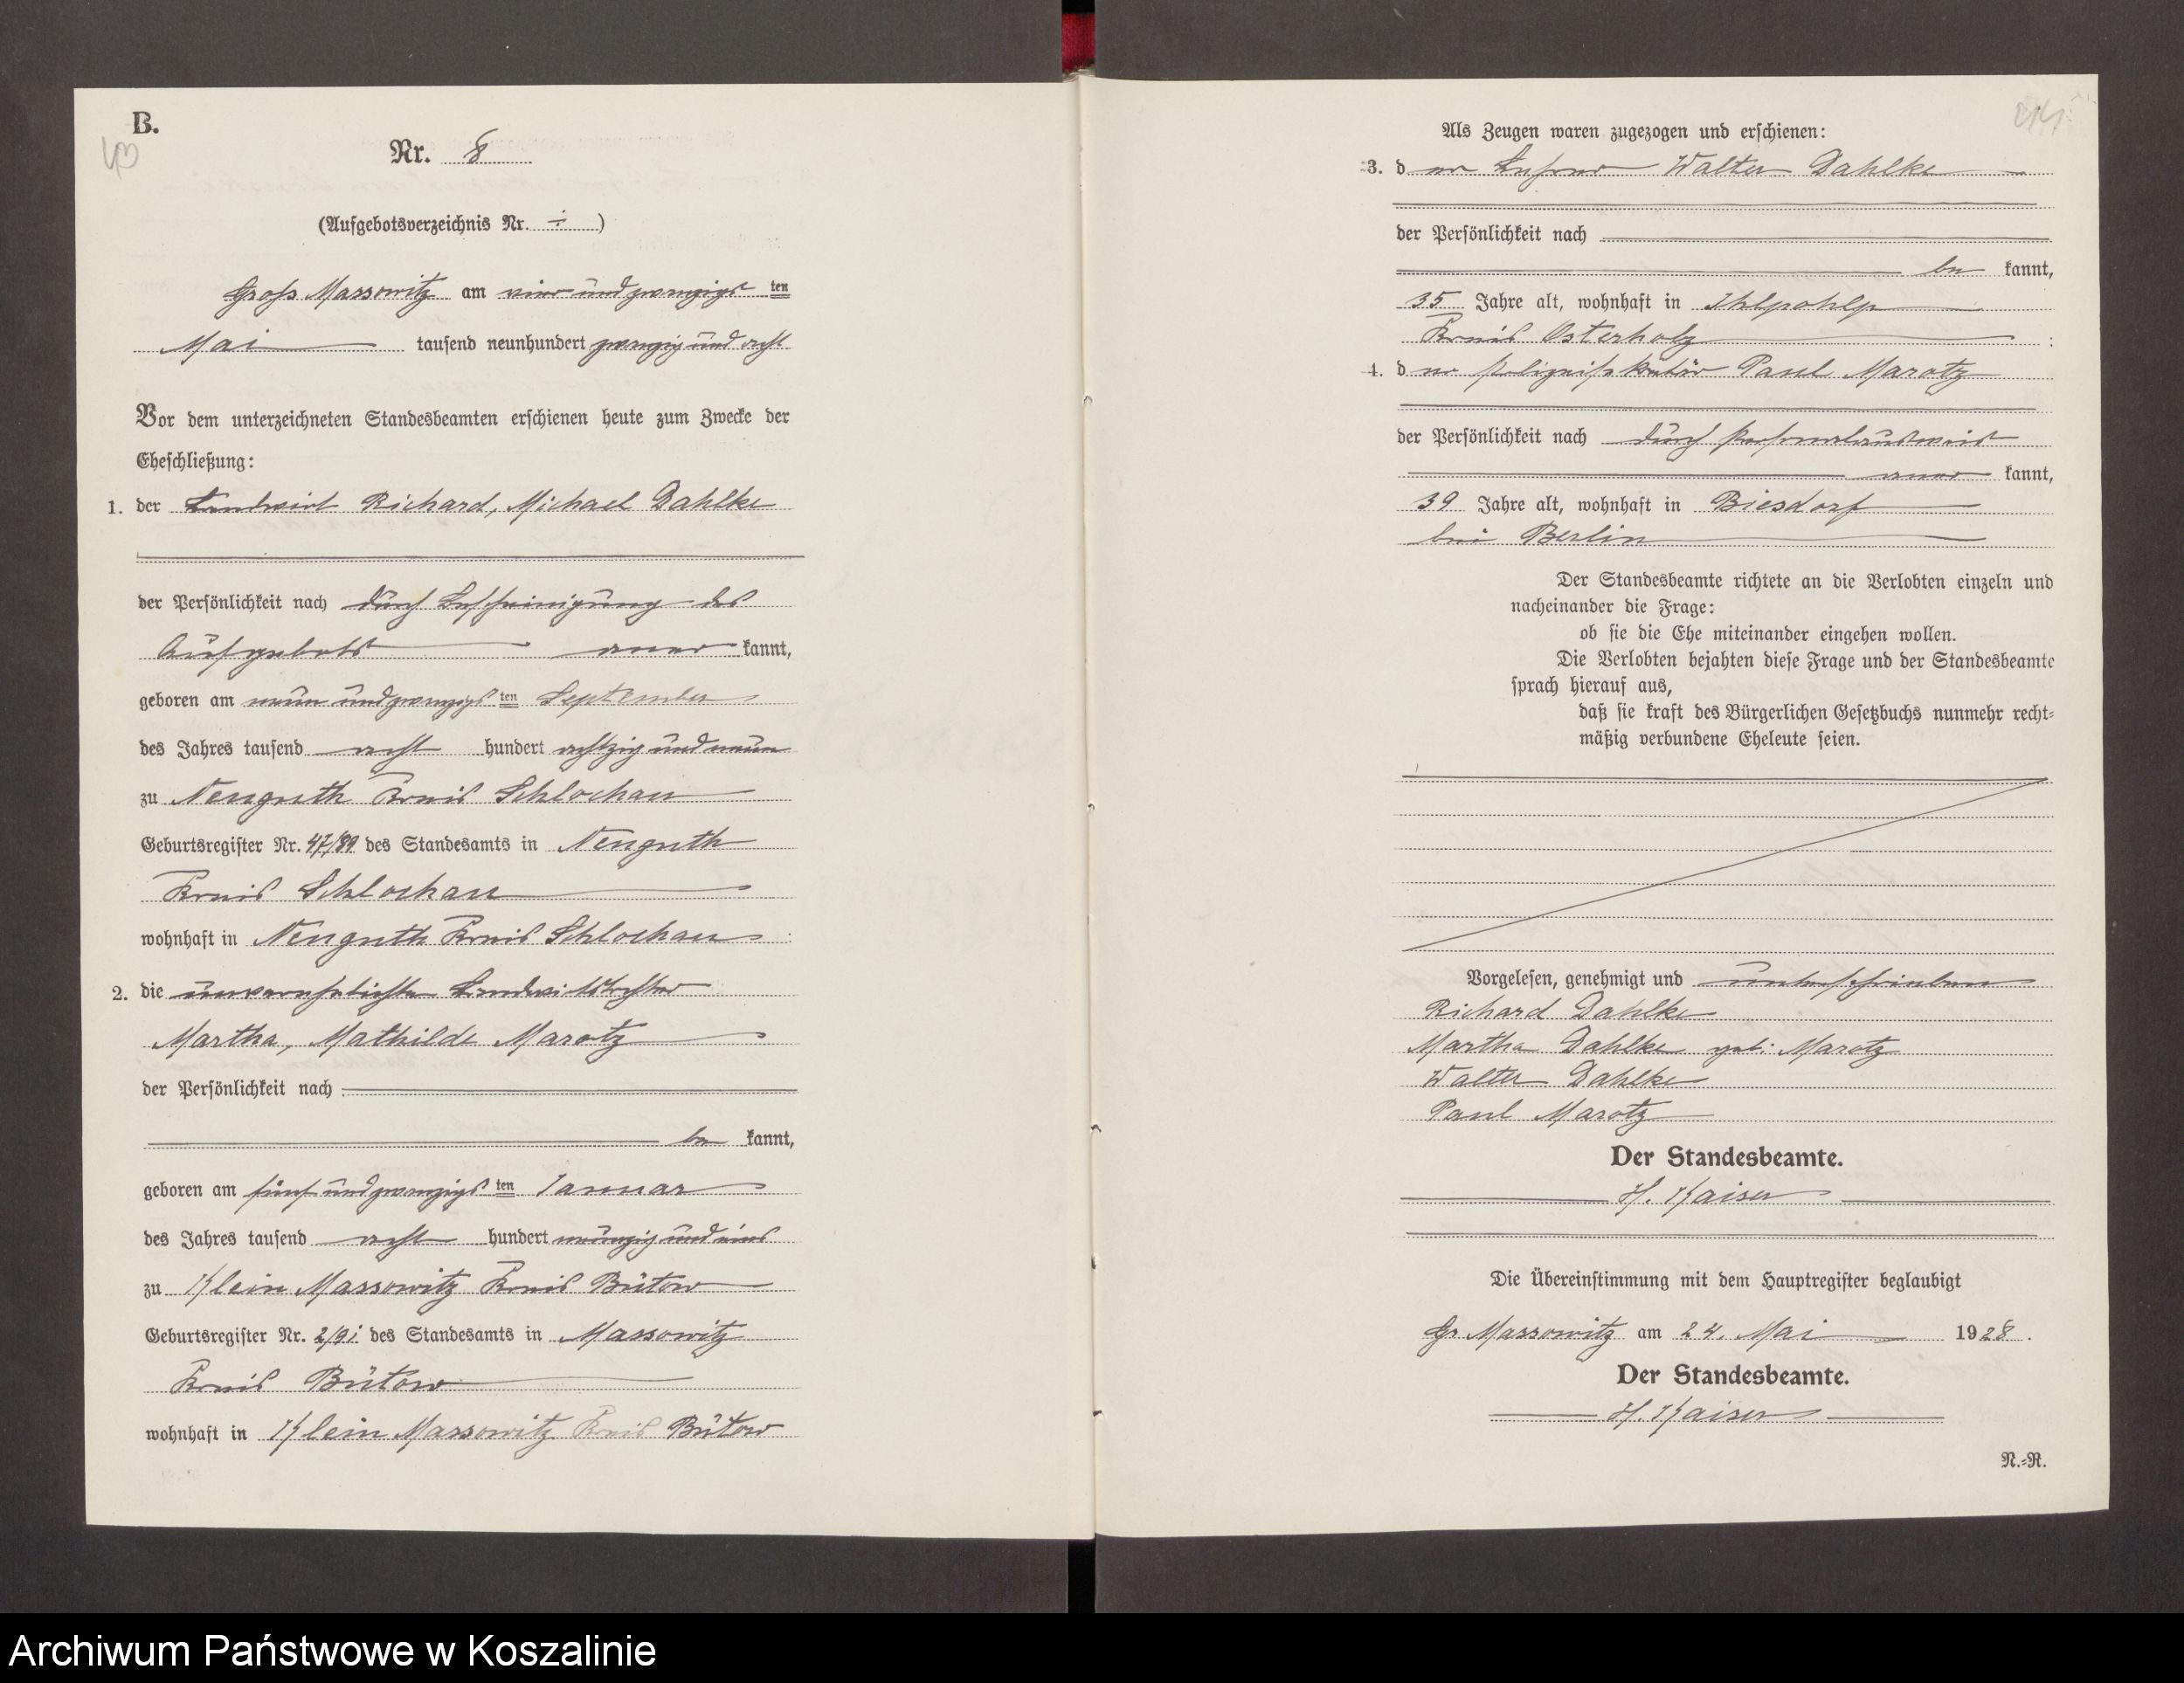 B.
Nr. 8
(Aufgebotsverzeichnis Nr. ÷)
Gross Massowitz am vier und zwanzigsten
Mai tausend neunhundert zwanzig und acht
Vor dem unterzeichneten Standesbeamten erschienen heute zum Zwecke der
Eheschließung:
1. der Landwirt Richard, Michael Dahlke
der Persönlichkeit nach durch Bescheinigung des
Aufgebots aner kannt,
geboren am neun und zwanzigsten September
des Jahres tausend acht hundert achtzig und neun
zu Neuguth Kreis Schlochau
Geburtsregister Nr. 47/89 des Standesamts in Neuguth
Kreis Schlochau
wohnhaft in Neuguth Kreis Schlochau
2. die unverehelichte Landwirtstochter
Martha, Mathilde Marotz
der Persönlichkeit nach
be kannt,
geboren am fünf und zwanzigsten Januar
des Jahres tausend acht hundert neunzig und eins
zu Klein Massowitz Kreis Bütow
Geburtsregister Nr. 2/91 des Standesamts in Massowitz
Kreis Bütow
wohnhaft in Klein Massowitz Kreis Bütow
Als Zeugen waren zugezogen und erschienen:
3. der Lehrer Walter Dahlke
der Persönlichkeit nach
be kannt,
35 Jahre alt, wohnhaft in Ihlpohl
Kreis Osterholz
4. der Polizeisekretär Paul Marotz
der Persönlichkeit nach durch Personalausweis
aner kannt,
39 Jahre alt, wohnhaft in Biesdorf
bei Berlin
Der Standesbeamte richtete an die Verlobten einzeln und
nacheinander die Frage:
ob sie die Ehe miteinander eingehen wollen.
Die Verlobten bejahten diese Frage und der Standesbeamte
sprach hierauf aus,
daß sie kraft des Bürgerlichen Gesetzbuchs nunmehr recht-
mäßig verbundene Eheleute seien.
Vorgelesen, genehmigt und unterschrieben
Richard Dahlke
Martha Dahlke geb. Marotz
Walter Dahlke
Paul Marotz
Der Standesbeamte.
H. Kaiser
Die Übereinstimmung mit dem Hauptregister beglaubigt
Gr Massowitz am 24. Mai 1928.
Der Standesbeamte.
H. Kaiser
N.-R.
Archiwum Państwowe w Koszalinie